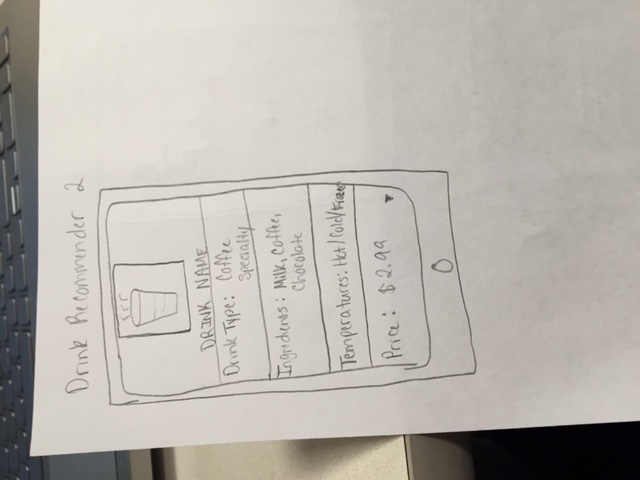 Drink Recommender 2
DRINK NAME
Drink Type: Coffee
Specialty
Ingredients: Milk, Coffee,
Chocolate
Temperatures: Hot/Cold/Frozen
Price: $2.99